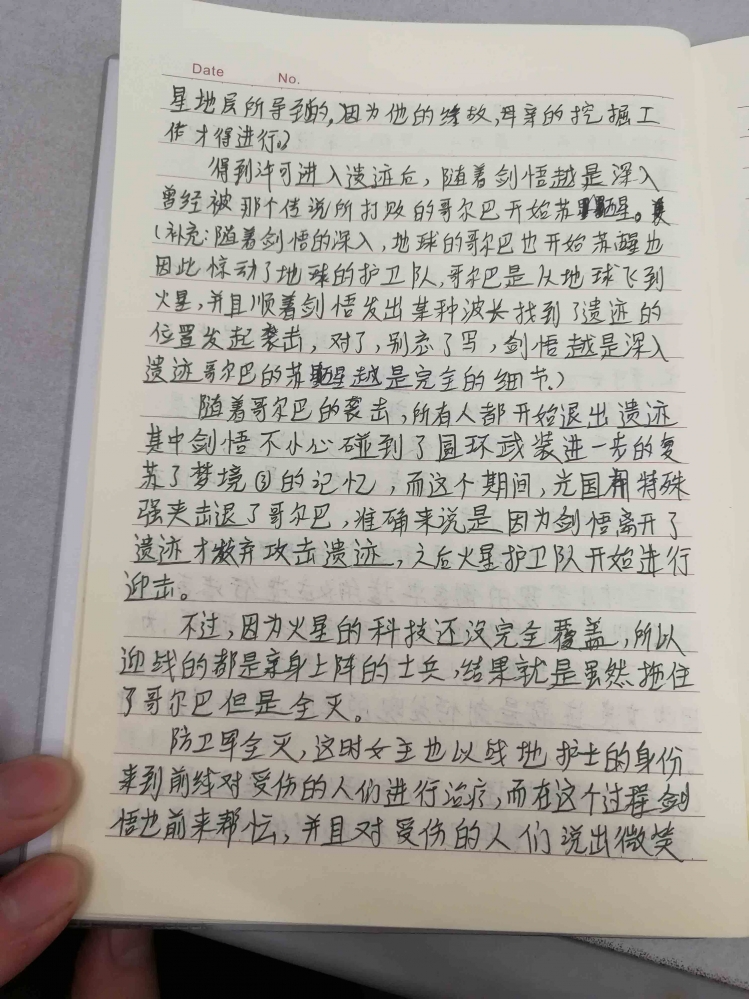 Date No.
星地层所导致的,因为他的缘故,母亲的挖掘工
作才得进行。)
得到许可进入遗迹后,随着剑悟越是深入
曾经被那个传说所打败的哥尔巴开始苏醒。
(补充:随着剑悟的深入,地球的哥尔巴也开始苏醒也
因此惊动了地球的护卫队,哥尔巴是从地球飞到
火星,并且顺着剑悟发出某种波长找到了遗迹的
位置发起袭击,对了,别忘了写,剑悟越是深入
遗迹哥尔巴的苏醒越是完全的细节。)
随着哥尔巴的袭击,所有人都开始退出遗迹
其中剑悟不小心碰到了圆环武装进一步的复
苏了梦境③的记忆,而这个期间,光国用特殊
强夹击退了哥尔巴,准确来说是因为剑悟离开了
遗迹才放弃攻击遗迹,之后火星护卫队开始进行
迎击。
不过,因为火星的科技还没完全覆盖,所以
迎战的都是亲身上阵的士兵,结果就是虽然拖住
了哥尔巴但是全灭。
防卫军全灭,这时女主也以战地护士的身份
来到前线对受伤的人们进行治疗,而在这个过程剑
悟也前来帮忙,并且对受伤的人们说出微笑